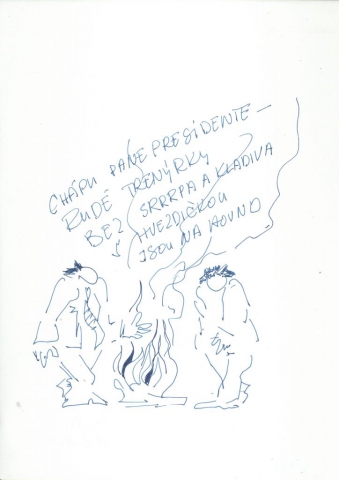 CHÁPU PANE PRESIDENTE —
RUDÉ TRENÝRKY
BEZ SRRRPA A KLADIVA
S HVEZDIČKOU
JSOU NA HOVNO